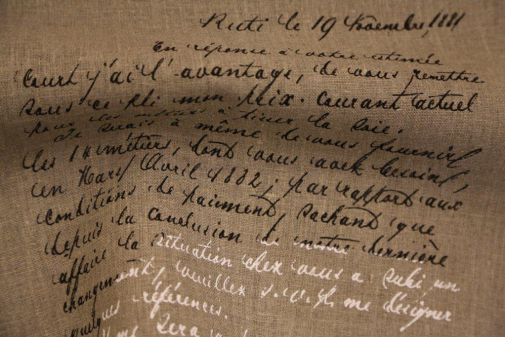 Ruti le 19 Novembre, 1881
En réponse à votre estimée
court j'ai l'avantage, de vous remettre
sous ce pli mon prix-courant actuel
pour les métiers à tisser la soie.
Je serais à même de vous fournir
les 12 métiers, dont vous avez besoin,
en Mars/Avril 1882; par rapport aux
conditions de paiement, sachant que
depuis la conclusion de notre dernière
affaire la situation chez vous a subi un
changement, veuillez s.v.pl. me désigner
quelques références.
me sera